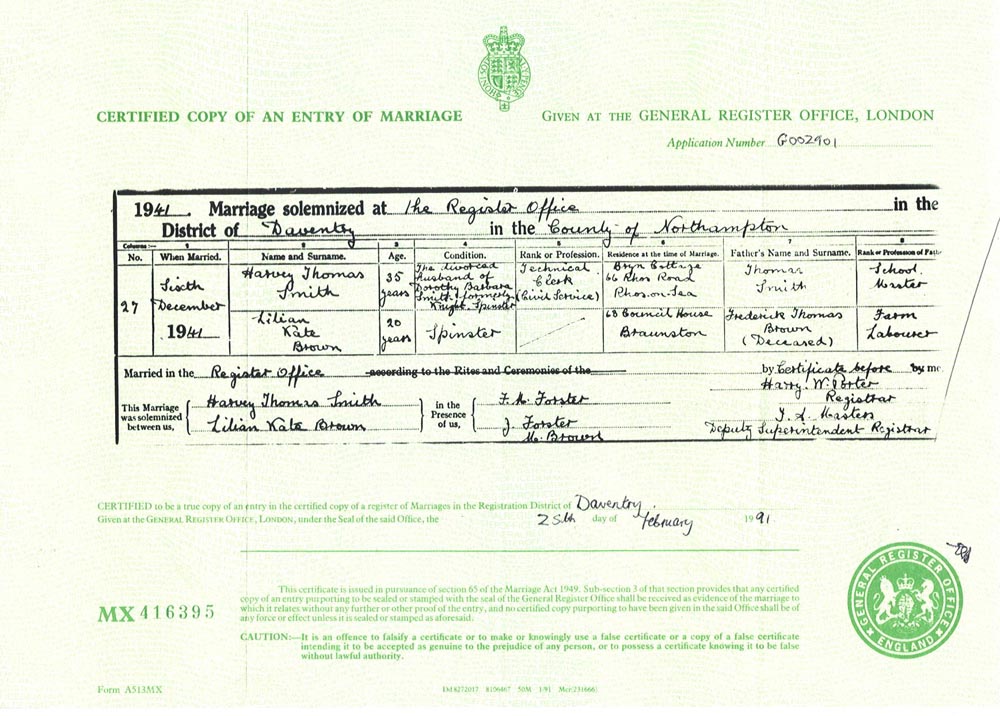 CERTIFIED COPY OF AN ENTRY OF MARRIAGE
GIVEN AT THE GENERAL REGISTER OFFICE, LONDON
Application Number G002901
1941. Marriage solemnized at the Register Office in the
District of Daventry in the County of Northampton
Columns:— 1 2 3 4 5 6 7 8
No. When Married. Name and Surname. Age. Condition. Rank or Profession. Residence at the time of Marriage. Father's Name and Surname. Rank or Profession of Fath
27
Sixth
December
1941
Harvey Thomas
Smith
35
years
The divorced
husband of
Dorothy Barbara
Smith formerly
Knight, Spinster
Technical
Clerk
(Civil Service)
Bryn Cottage
66 Rhos Road
Rhos-on-Sea
Thomas
Smith
School
Master
Lilian
Kate
Brown
20
years
Spinster
68 Council House
Braunston
Frederick Thomas
Brown
(Deceased)
Farm
Labourer
Married in the Register Office according to the Rites and Ceremonies of the by Certificate before by me
This Marriage
was solemnized
between us,
Harvey Thomas Smith
Lilian Kate Brown
in the
Presence
of us,
F. M. Forster
J. Forster
M. Brown
Harry W. Porter
Registrar
Masters
Deputy Superintendent Registrar
CERTIFIED to be a true copy of an entry in the certified copy of a register of Marriages in the Registration District of Daventry
Given at the GENERAL REGISTER OFFICE, LONDON, under the Seal of the said Office, the 25th day of February 1991
MX 416395
This certificate is issued in pursuance of section 65 of the Marriage Act 1949. Sub-section 3 of that section provides that any certified
copy of an entry purporting to be sealed or stamped with the seal of the General Register Office shall be received as evidence of the marriage to
which it relates without any further or other proof of the entry, and no certified copy purporting to have been given in the said Office shall be of
any force or effect unless it is sealed or stamped as aforesaid.
CAUTION:—It is an offence to falsify a certificate or to make or knowingly use a false certificate or a copy of a false certificate
intending it to be accepted as genuine to the prejudice of any person, or to possess a certificate knowing it to be false
without lawful authority.
GENERAL REGISTER OFFICE
ENGLAND
Form A513MX
Dd 8272017 8106467 50M 1/91 Mcr 231666